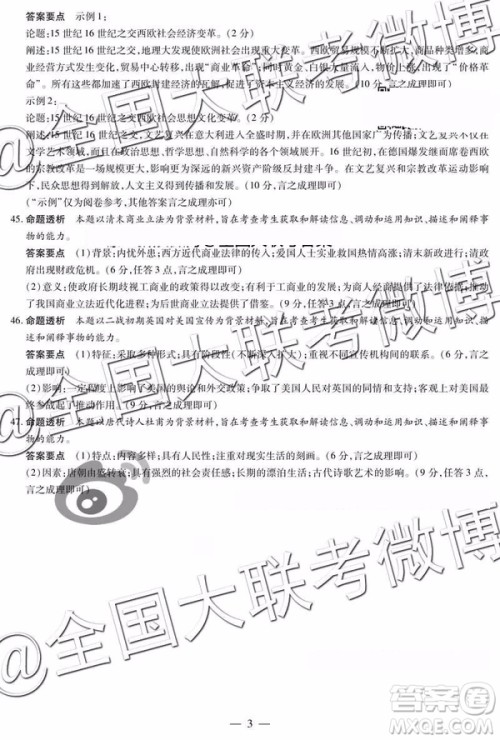 答案要点 示例1:
论题:15世纪16世纪之交西欧社会经济变革。(2分)
阐述:15世纪16世纪之交,地理大发现使欧洲社会经济发展出现重大变革。西欧贸易规模不断扩大,商品种类增多;商
业经营方式发生变化,贸易中心转移,出现“商业革命”;同时大量黄金、白银流入,物价上涨,出现“价格革
命”。所有这些都加速了西欧封建经济的瓦解,促进了资本主义经济的发展。(10分)
示例2:
论题:15世纪16世纪之交西欧社会思想文化变革。(2分)
阐述:15世纪16世纪之交,文艺复兴在意大利进入全盛时期,并在欧洲其他国家广为传播;文艺复兴不仅在
文学艺术领域,而且在政治、科学等各个领域展开。在文艺复兴的影响下,在德国爆发继而席卷西欧
的宗教改革是一场规模更大、影响更为深远的反封建斗争。在文艺复兴和宗教改革运动中,人们思
想得到解放,促进了人文主义的传播和发展。(10分)
(“示例”仅为阅卷参考,考生言之成理即可)
45. 命题透析 本题以清末商业立法为背景材料,旨在考查考生获取和解读信息、调动和运用知识、描述和阐释事
物的能力。
答案要点 (1)背景:内忧外患;西方近代商业法律的传入;爱国人士实业救国热情高涨;清末新政进行;清政
府出现财政危机。(6分,任答3点,言之成理即可)
(2)意义:使政府长期歧视工商业的政策得到改变;有利于工商业的发展;为工商业提供了法律保障;推
动了我国商业立法近代化进程;为后世商业立法提供了借鉴。(9分,言之成理即可)
46. 命题透析 本题以二战初期英国对美国宣传为背景材料,旨在考查考生获取和解读信息、调动和运用知识、描述
和阐释事物的能力。
答案要点 (1)特征:采取多种形式;具有阶段性(不断深入扩大);重视民间影响。(6分,言之成理即可)
(2)影响:一定程度上影响了美国的舆论和外交政策;争取了美国人民对英国的同情和支持;对美国最
终参战起了推动作用。(9分,言之成理即可)
47. 命题透析 本题以唐代诗人杜甫为背景材料,旨在考查考生获取和解读信息、调动和运用知识、描述和阐释事物
的能力。
答案要点 (1)特点:内容多样;具有人民性;注重写实;富有创造性。(6分,任答3点,言之成理即可)
(2)因素:唐朝由盛转衰;强烈的社会责任感;长期的漂泊生活;古代诗歌艺术的影响。(9分,任答3点,
言之成理即可)
@全国大联考微博
@全国大联考微博
— 3 —
答案圈
MXQE.COM